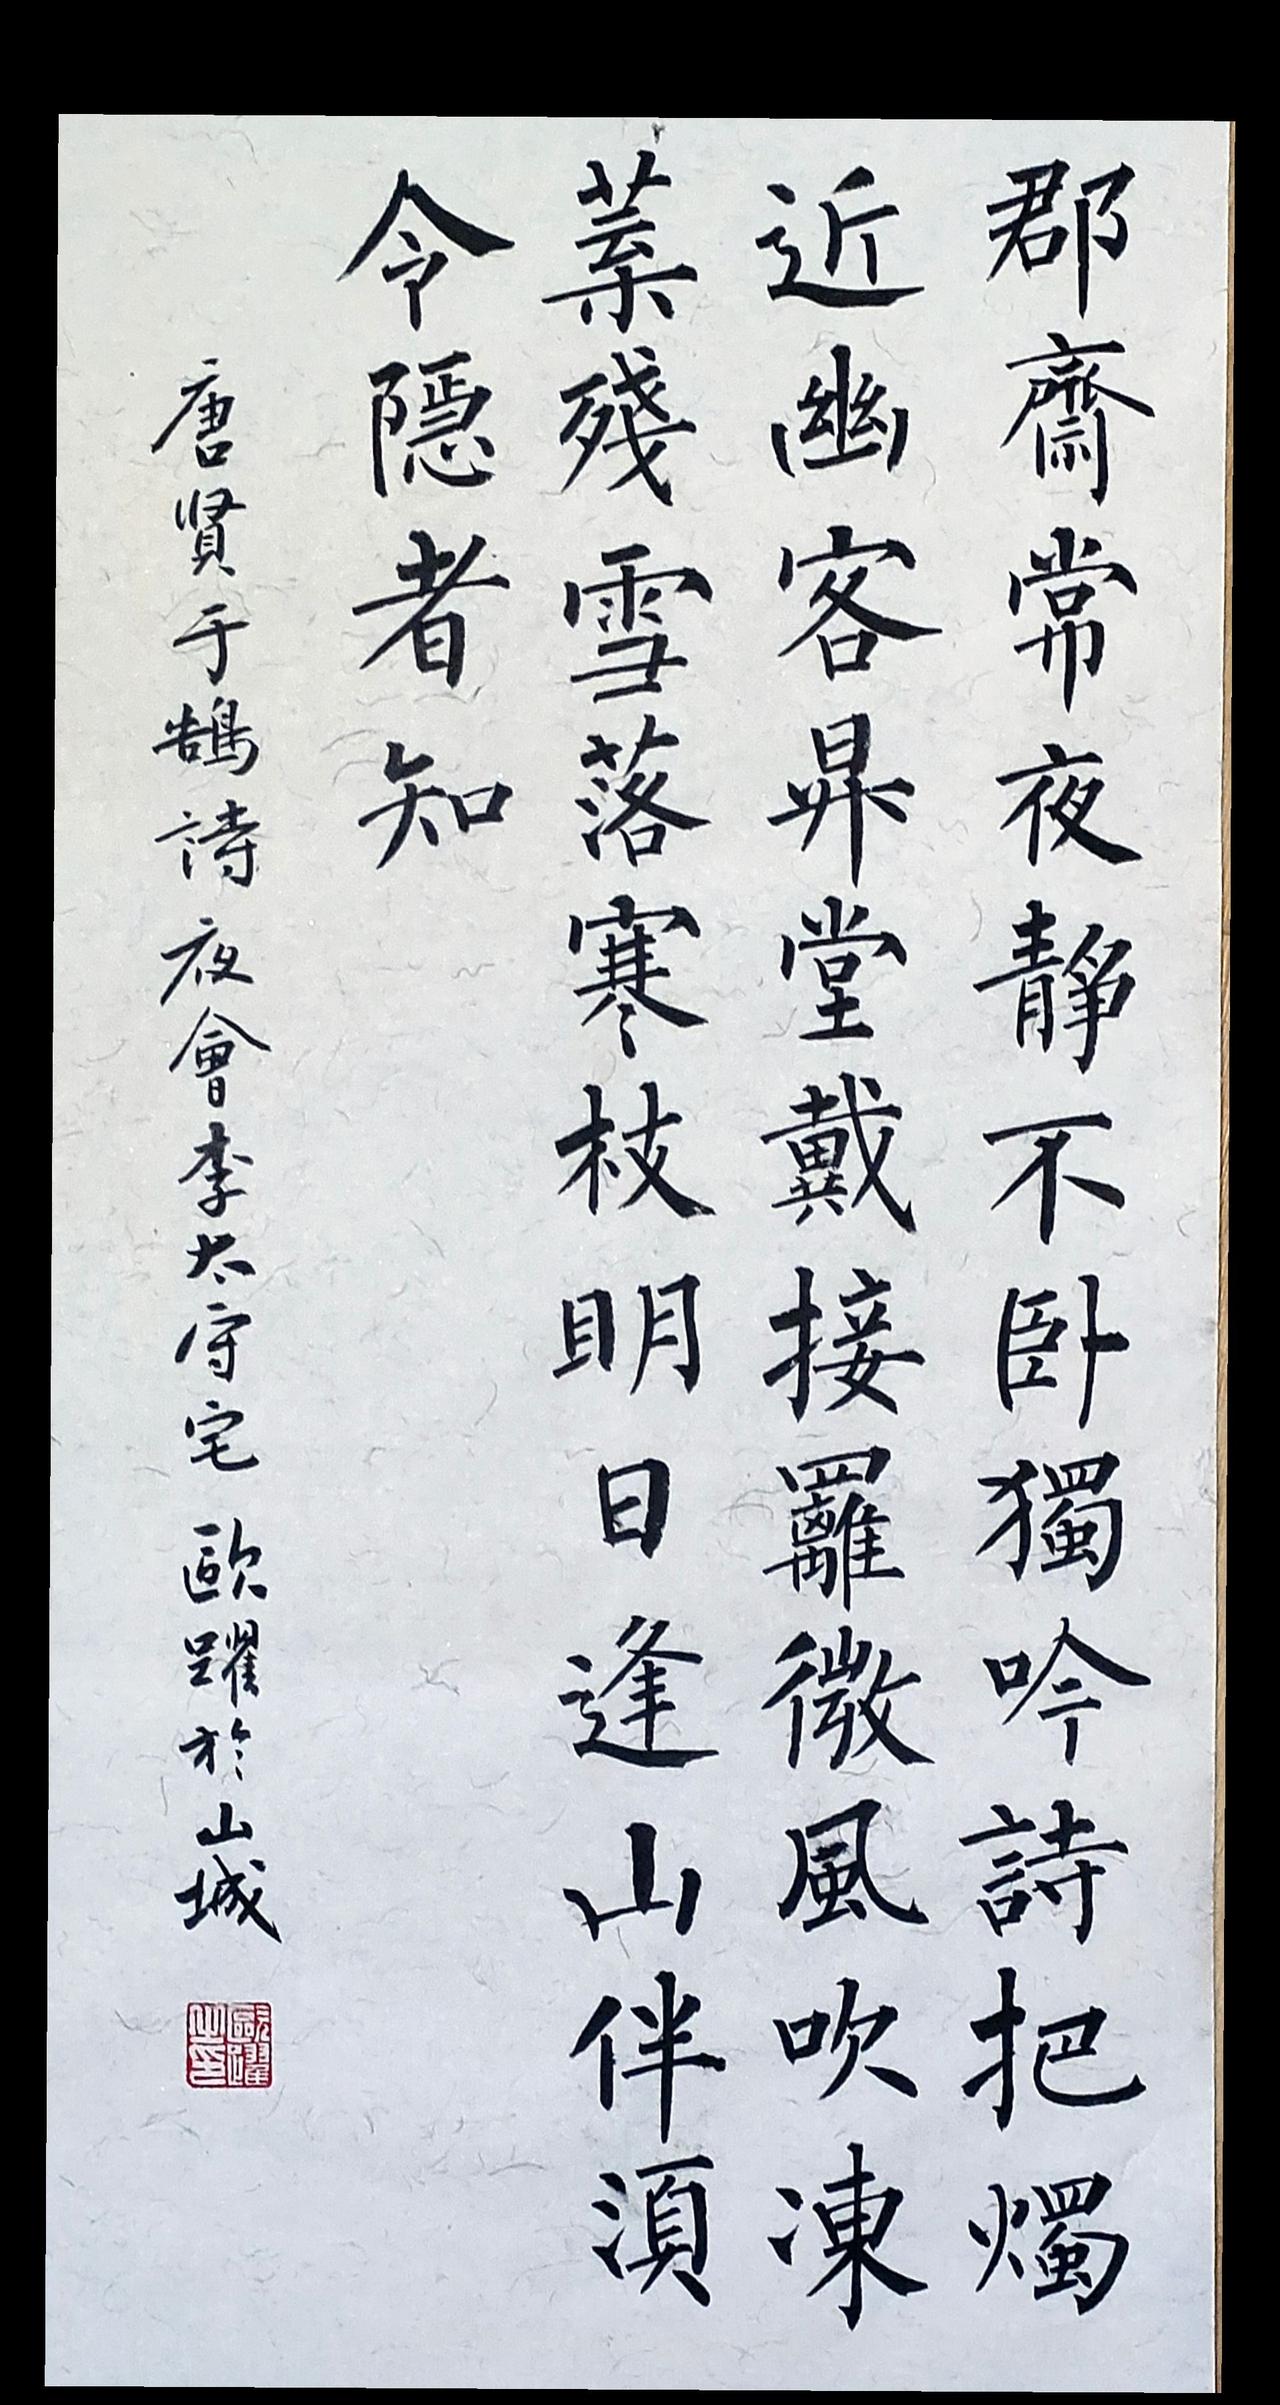 郡齋常夜靜不卧獨吟詩把燭
近幽客昇堂戴接羅微風吹凍
葉殘雪落寒枝明日逢山伴須
令隱者知
唐贤于鵠詩夜會李太守宅 歐躍於山城
歐躍之印